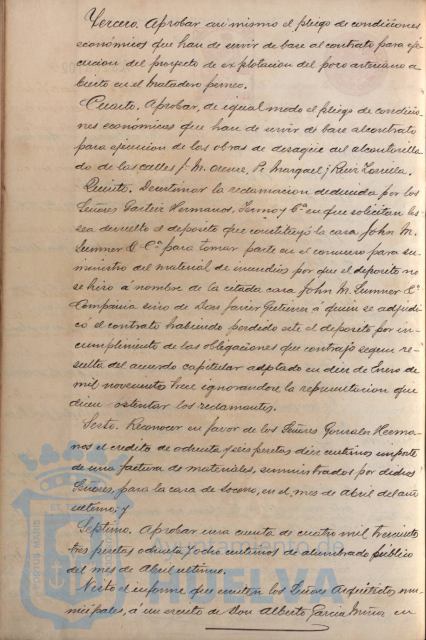 Tercero. Aprobar asi mismo el pliego de condiciones
economicas que han de servir de base al contrato para eje-
cucion del proyecto de explotacion del pozo artesiano a-
bierto en el matadero
Cuarto. Aprobar, de igual modo el pliego de condicio-
nes económicas que han de servir de base al contrato
para ejecucion de las obras de desagüe del alcantarilla-
do de las calles J. M. Orense, Pi Margall y Ruiz Zorrilla.
Quinto. Desestimar la reclamacion deducida por los
Señores Hermanos, y Cª en que solicitan les
sea devuelto el deposito que constituyó la casa John M.
Sumner & Cª para tomar parte en el concurso para su-
ministro del material de incendios por que el deposito no
se hizo á nombre de la citada casa John M. Sumner &ª
Compañia sino de Don Javier Gutierrez á quien se adjudi-
có el contrato habiendo perdido este el deposito por in-
cumplimiento de las obligaciones que contrajo segun re-
sulta del acuerdo capitular adoptado en diez de Enero de
mil novecientos trece ignorandose la representacion que
dicen ostentar los reclamantes.
Sexto. Reconocer en favor de los Señores Gonzalez Herma-
nos el credito de ochenta y seis pesetas diez centimos importe
de una factura de materiales, suministrados por dichos
Señores, para la casa de socorro, en el mes de Abril del año
ultimo; y
Septimo. Aprobar una cuenta de cuatro mil trescientos
tres pesetas ochenta y ocho centimos de alumbrado público
del mes de Abril ultimo.
Visto el informe que emiten los Señores Arquitectos mu-
nicipales, á un escrito de Don Alberto Garcia Muñoz en
PORTUS MARIS
Ayuntamiento de
HUELVA